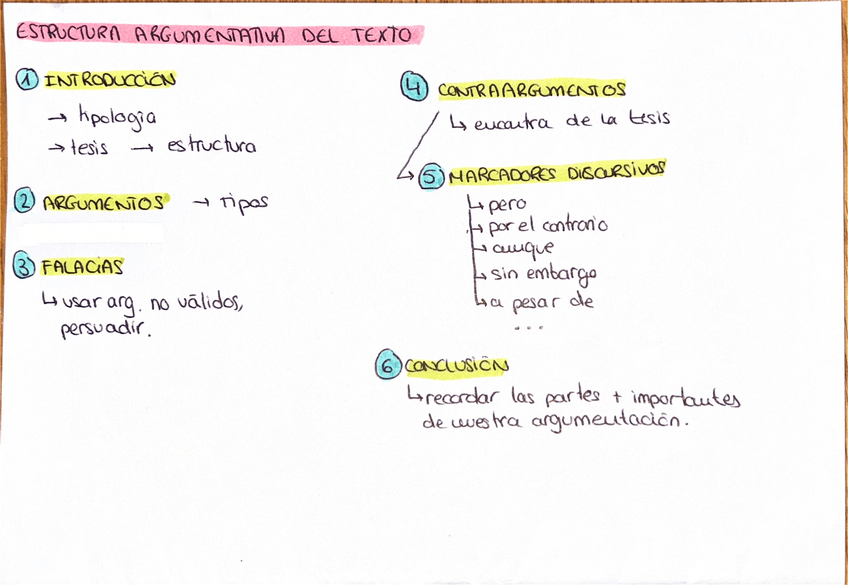 ESTRUCTURA ARGUMENTATIVA DEL TEXTO
1 INTRODUCCIÓN
→ tipología
→ tesis → estructura
2 ARGUMENTOS → tipos
3 FALACIAS
↳ usar arg. no válidos,
persuadir.
4 CONTRAARGUMENTOS
↳ encontra de la tesis
5 MARCADORES DISCURSIVOS
↳ pero
↳ por el contrario
↳ aunque
↳ sin embargo
↳ a pesar de
...
6 CONCLUSIÓN
↳ recordar las partes + importantes
de nuestra argumentación.